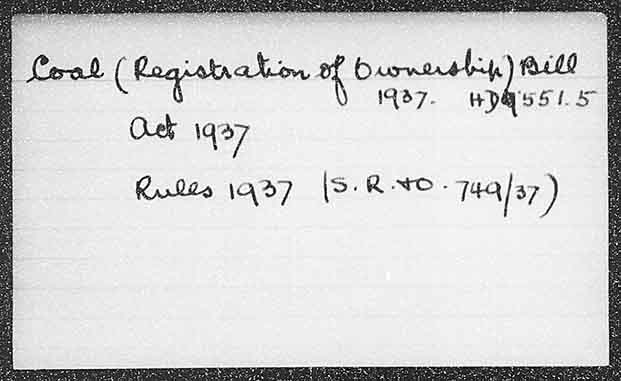 Coal (Registration of Ownership) Bill
1937. HD9551.5
Act 1937
Rules 1937 (S.R.+O. 749/37)